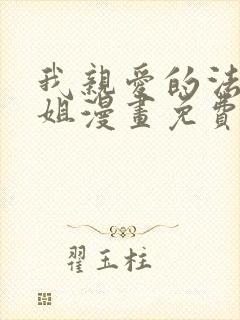 我親愛的法
姐漫畫免費
翟玉柱